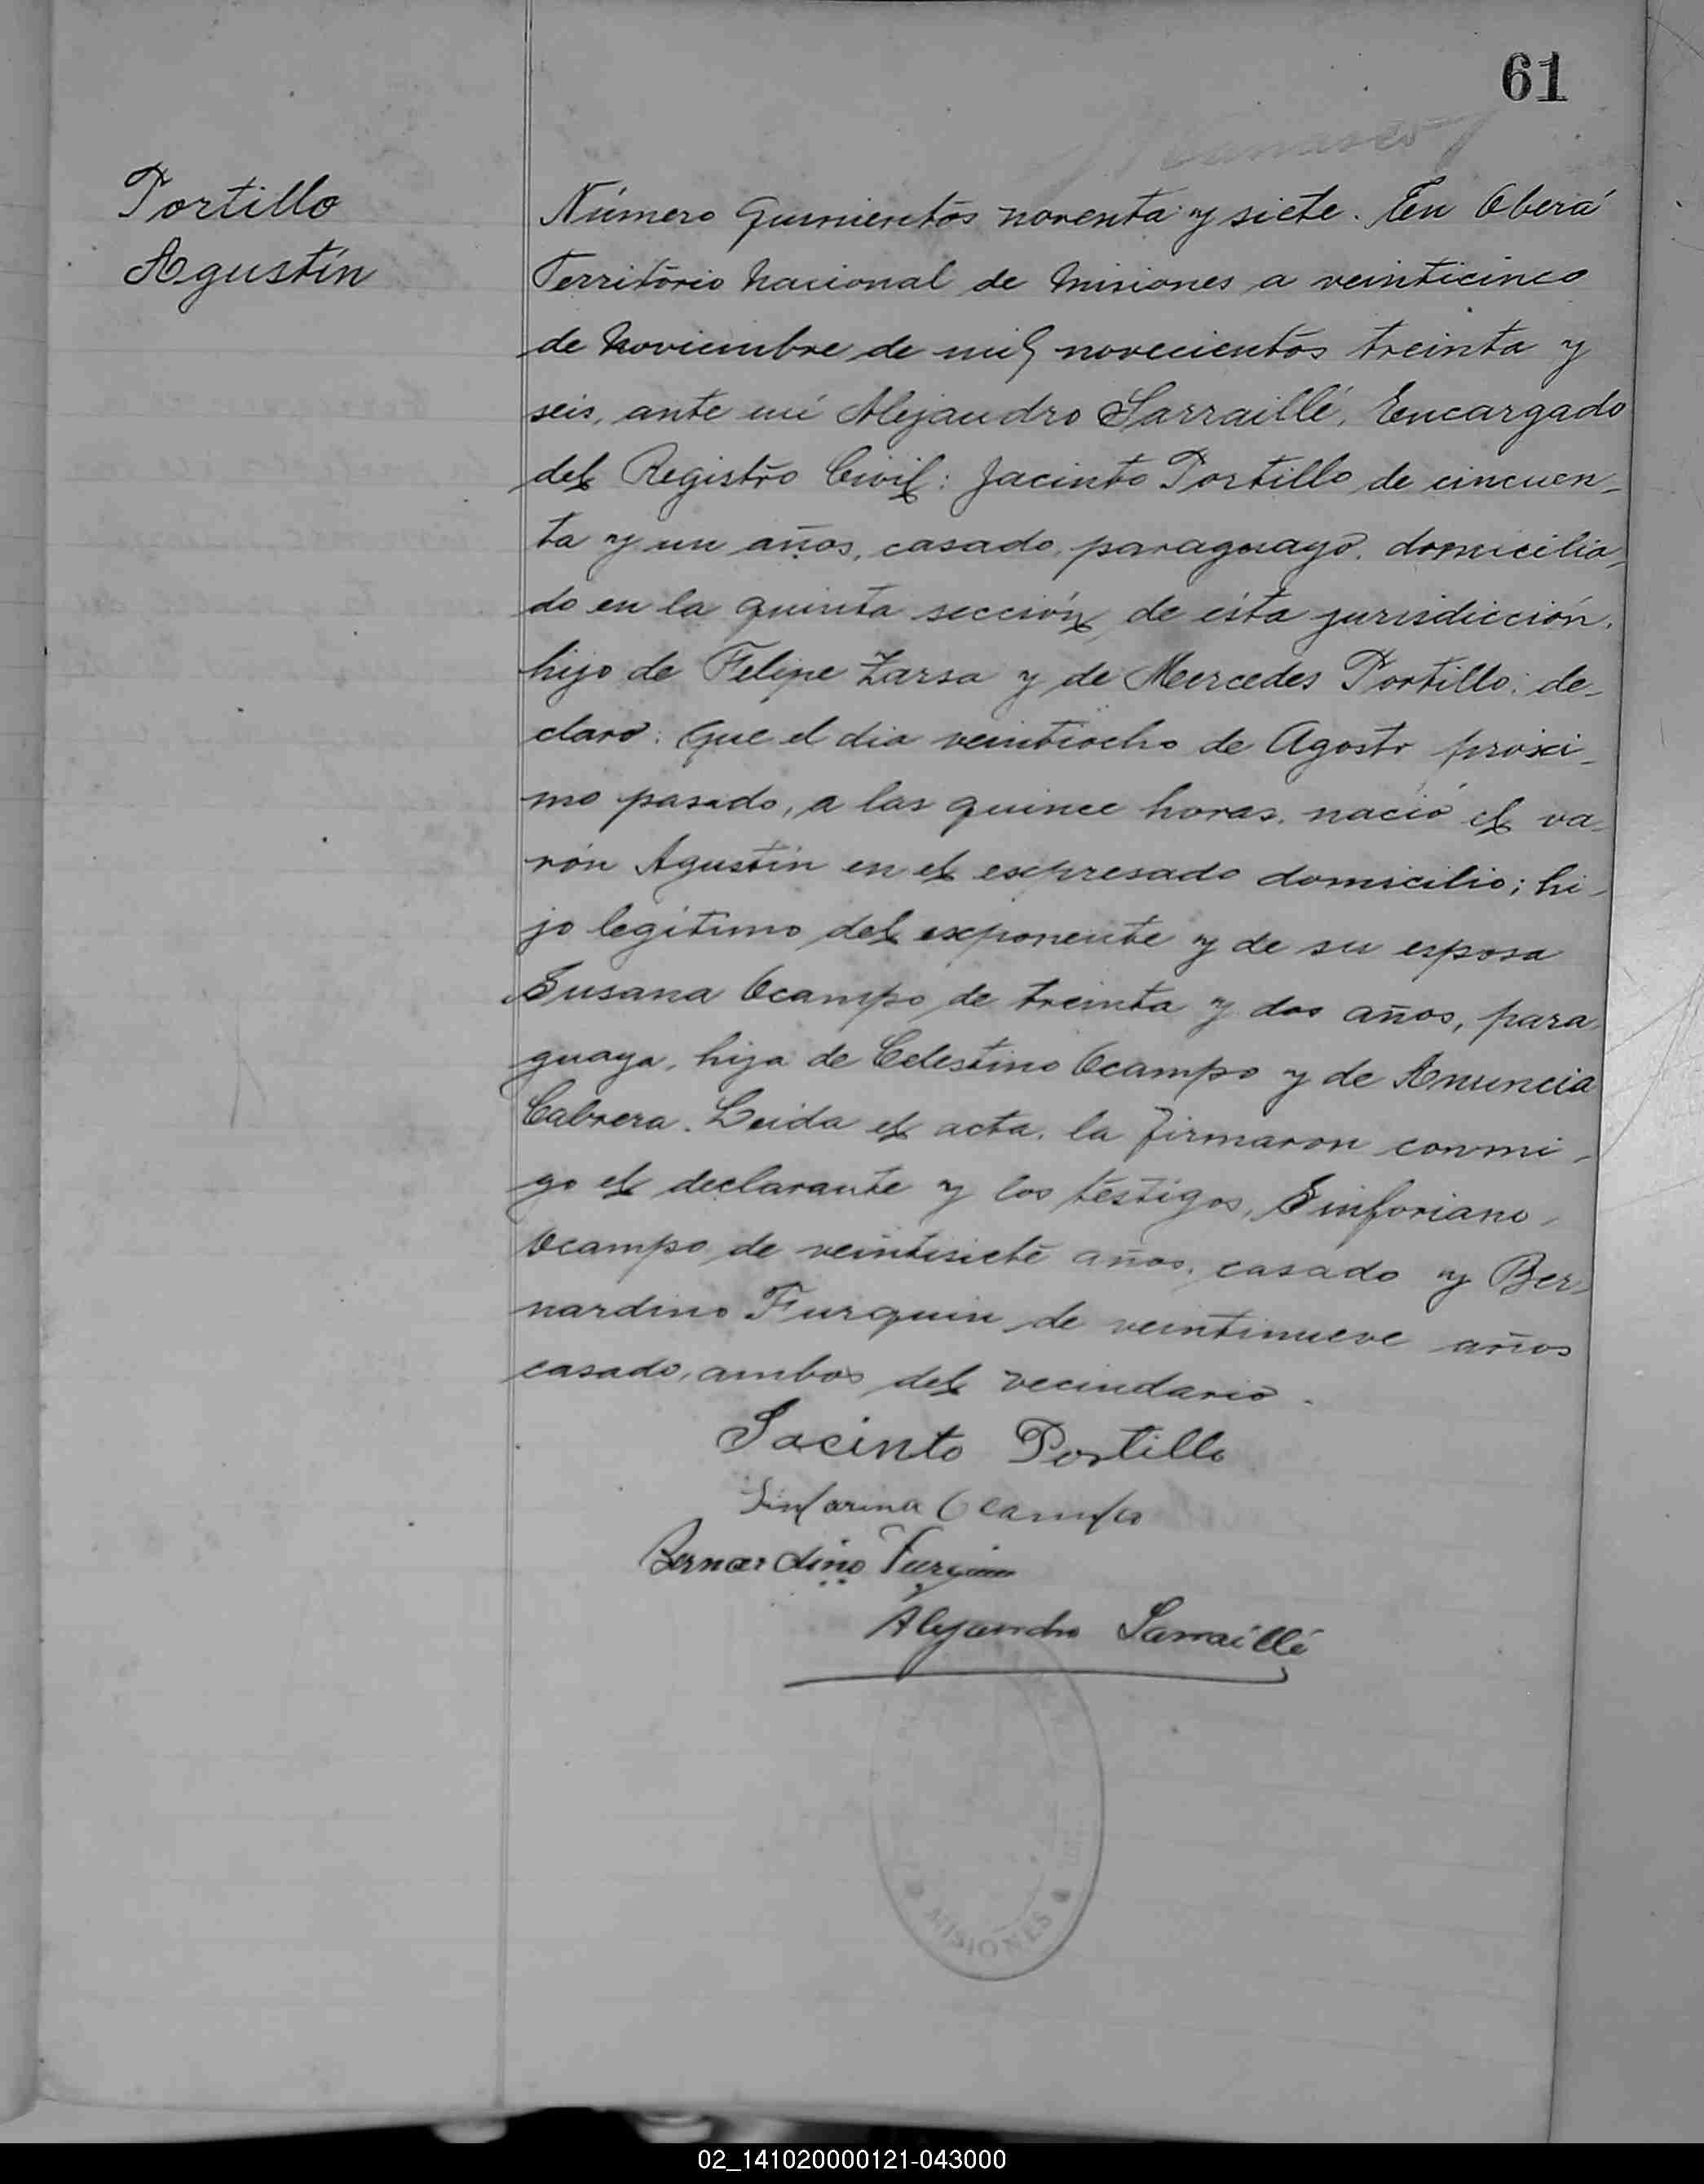 61
Portillo
Agustín
Número quinientos noventa y siete. En Oberá
Territorio Nacional de Misiones a veinticinco
de Noviembre de mil novecientos treinta y
seis, ante mí Alejandro Sarraillé, Encargado
del Registro Civil: Jacinto Portillo de cincuen-
ta y un años, casado, paraguayo, domicilia-
do en la quinta sección de ésta jurisdicción,
hijo de Felipe Zarsa y de Mercedes Portillo; de-
claró: que el dia veintiocho de Agosto próxi-
mo pasado, a las quince horas, nació el va-
rón Agustín en el expresado domicilio; hi-
jo legítimo del exponente y de su esposa
Susana Ocampo de treinta y dos años, para-
guaya, hija de Celestino Ocampo y de Anuncia
Cabrera. Leida el acta, la firmaron conmi-
go el declarante y los testigos, Sinforiano
Ocampo de veintisiete años, casado y Ber-
nardino Furquin de veintinueve años
casado, ambos del vecindario.
Jacinto Portillo
Ocampo
Bernardino Furquin
Alejandro Sarraillé
MISIONES
02_141020000121-043000